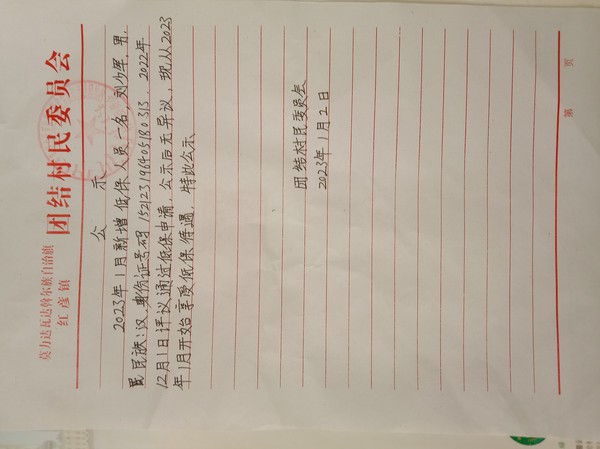 莫力达瓦达斡尔族自治旗
红彦镇
团结村民委员会
公示
2023年1月新增低保人员一名,刘少军,男,
民族:汉,身份证号码152123196405180313,2022年
12月1日评议通过低保申请,公示后无异议,现从2023
年1月开始享受低保待遇,特此公示
团结村民委员会
2023年1月2日
第 页